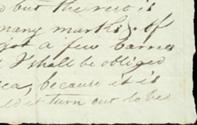 but there is
many marks of
got a few barrie
I shall be obliged
because it is
it turn out to be